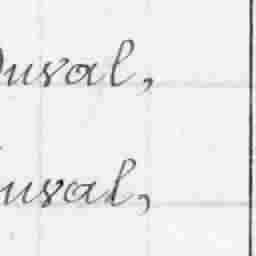 Duval,
uval,